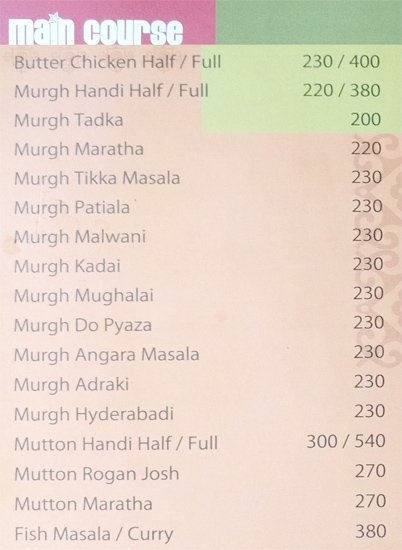 main course
Butter Chicken Half / Full 230 / 400
Murgh Handi Half / Full 220 / 380
Murgh Tadka 200
Murgh Maratha 220
Murgh Tikka Masala 230
Murgh Patiala 230
Murgh Malwani 230
Murgh Kadai 230
Murgh Mughalai 230
Murgh Do Pyaza 230
Murgh Angara Masala 230
Murgh Adraki 230
Murgh Hyderabadi 230
Mutton Handi Half / Full 300 / 540
Mutton Rogan Josh 270
Mutton Maratha 270
Fish Masala / Curry 380